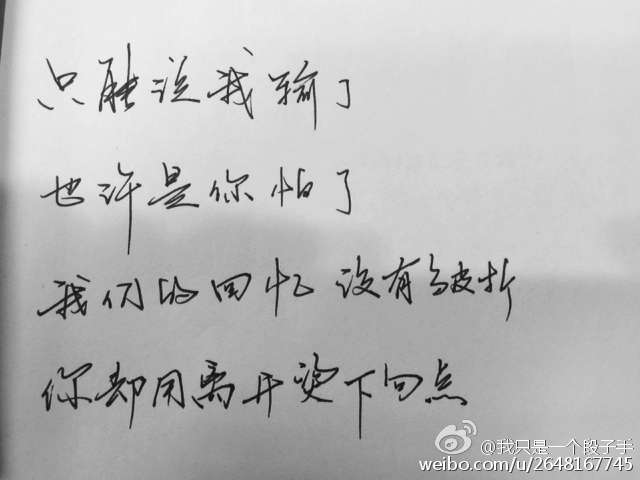 只能说我输了
也许是你怕了
我们的回忆 没有皱折
你却用离开烫下句点
@我只是一个段子手
weibo.com/u/2648167745